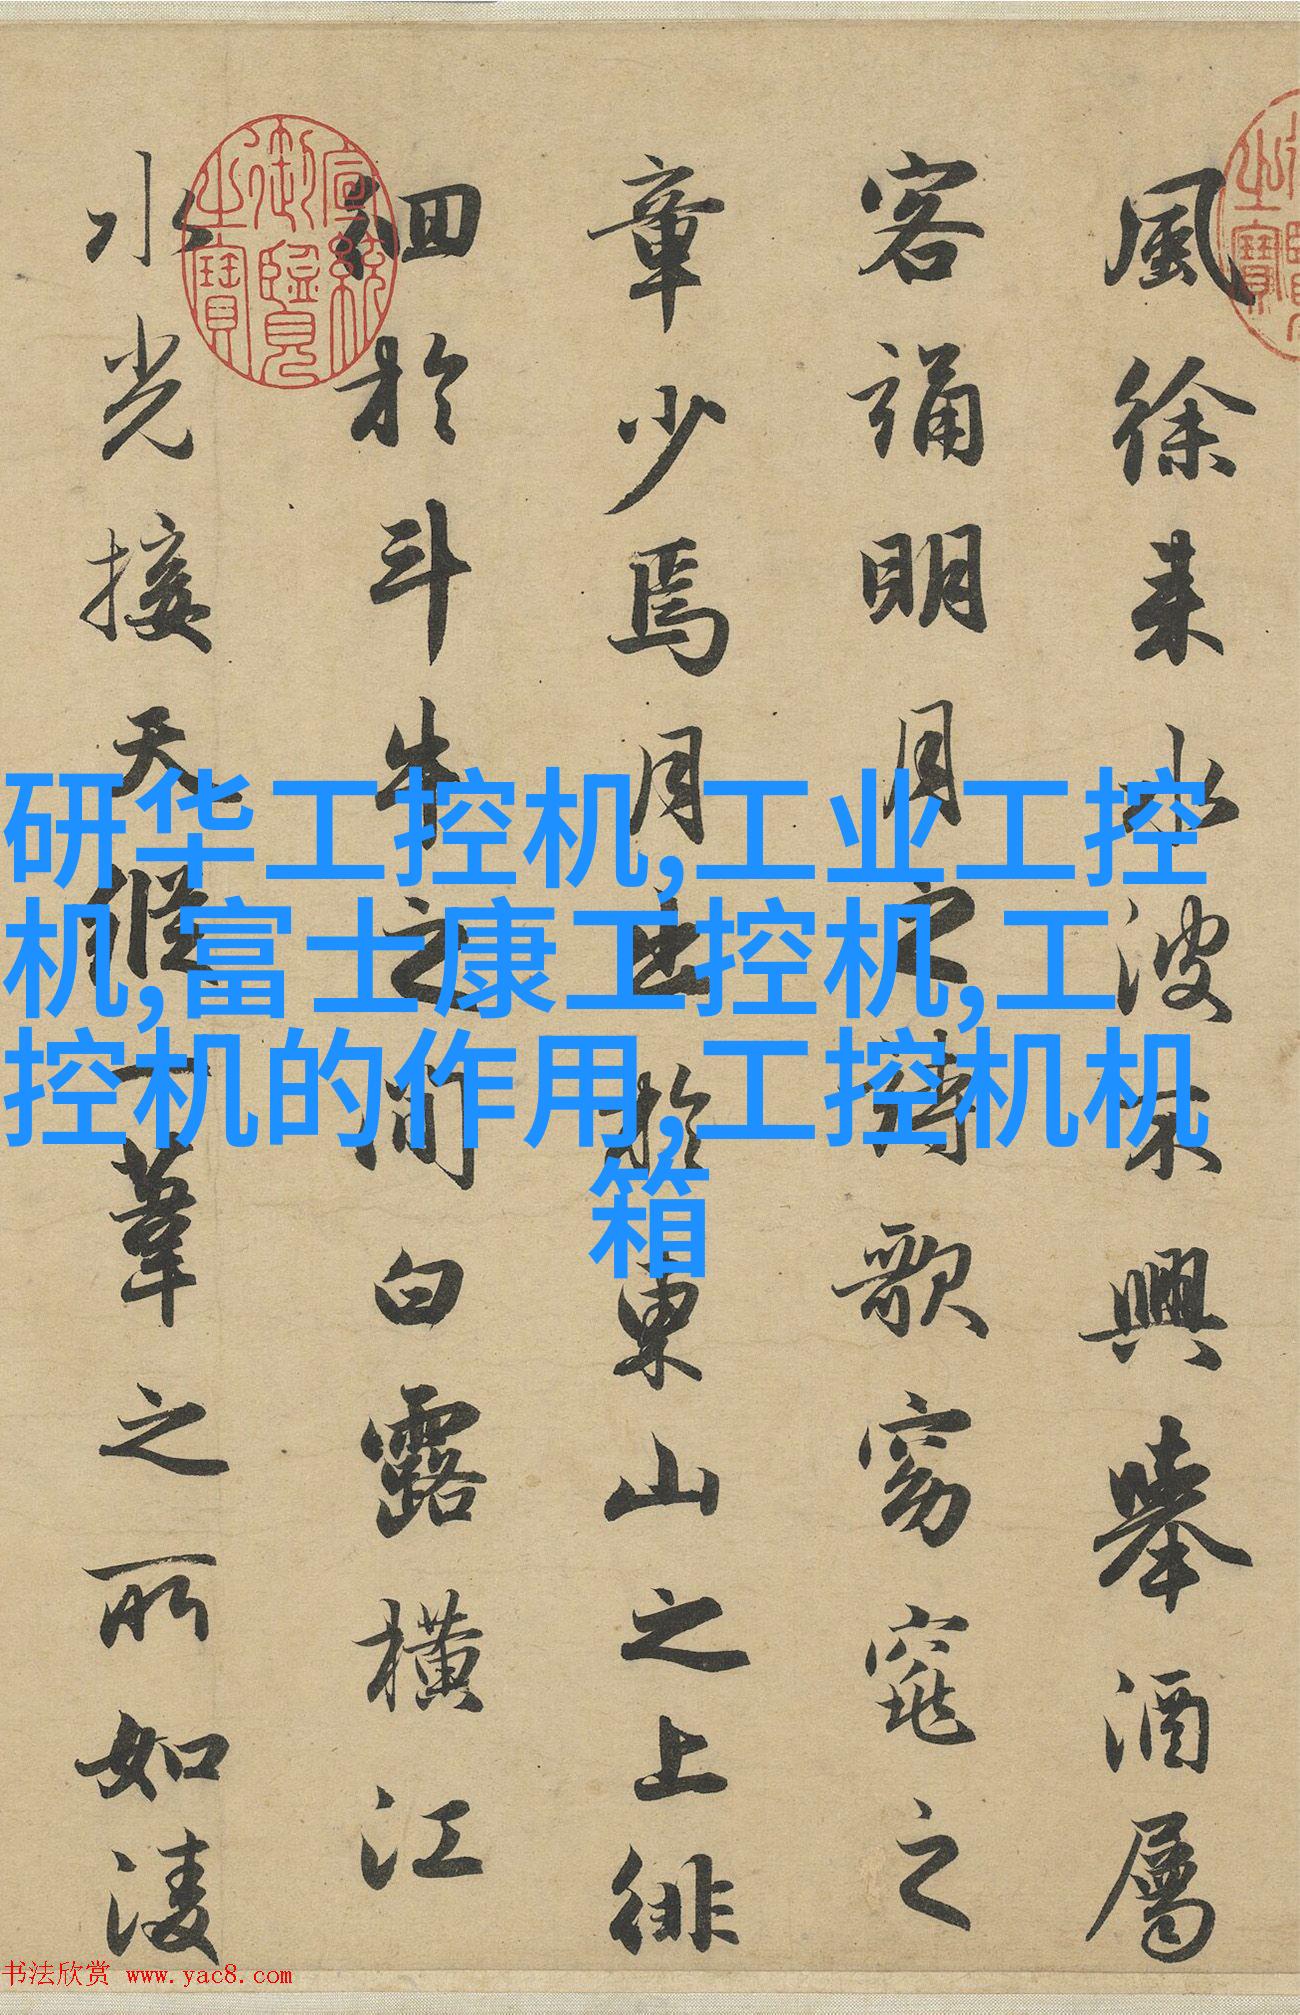 風徐来水波不興舉酒屬
客誦明月之詩歌窈窕之
章少焉月出於東山之上徘
徊於斗牛之间白露横江
水光接天縱一葦之所如凌
宣統御覽之寶
研华工控机,工业工控
机,富士康工控机,工
控机的作用,工控机机
箱
书法欣赏 www.yac8.com